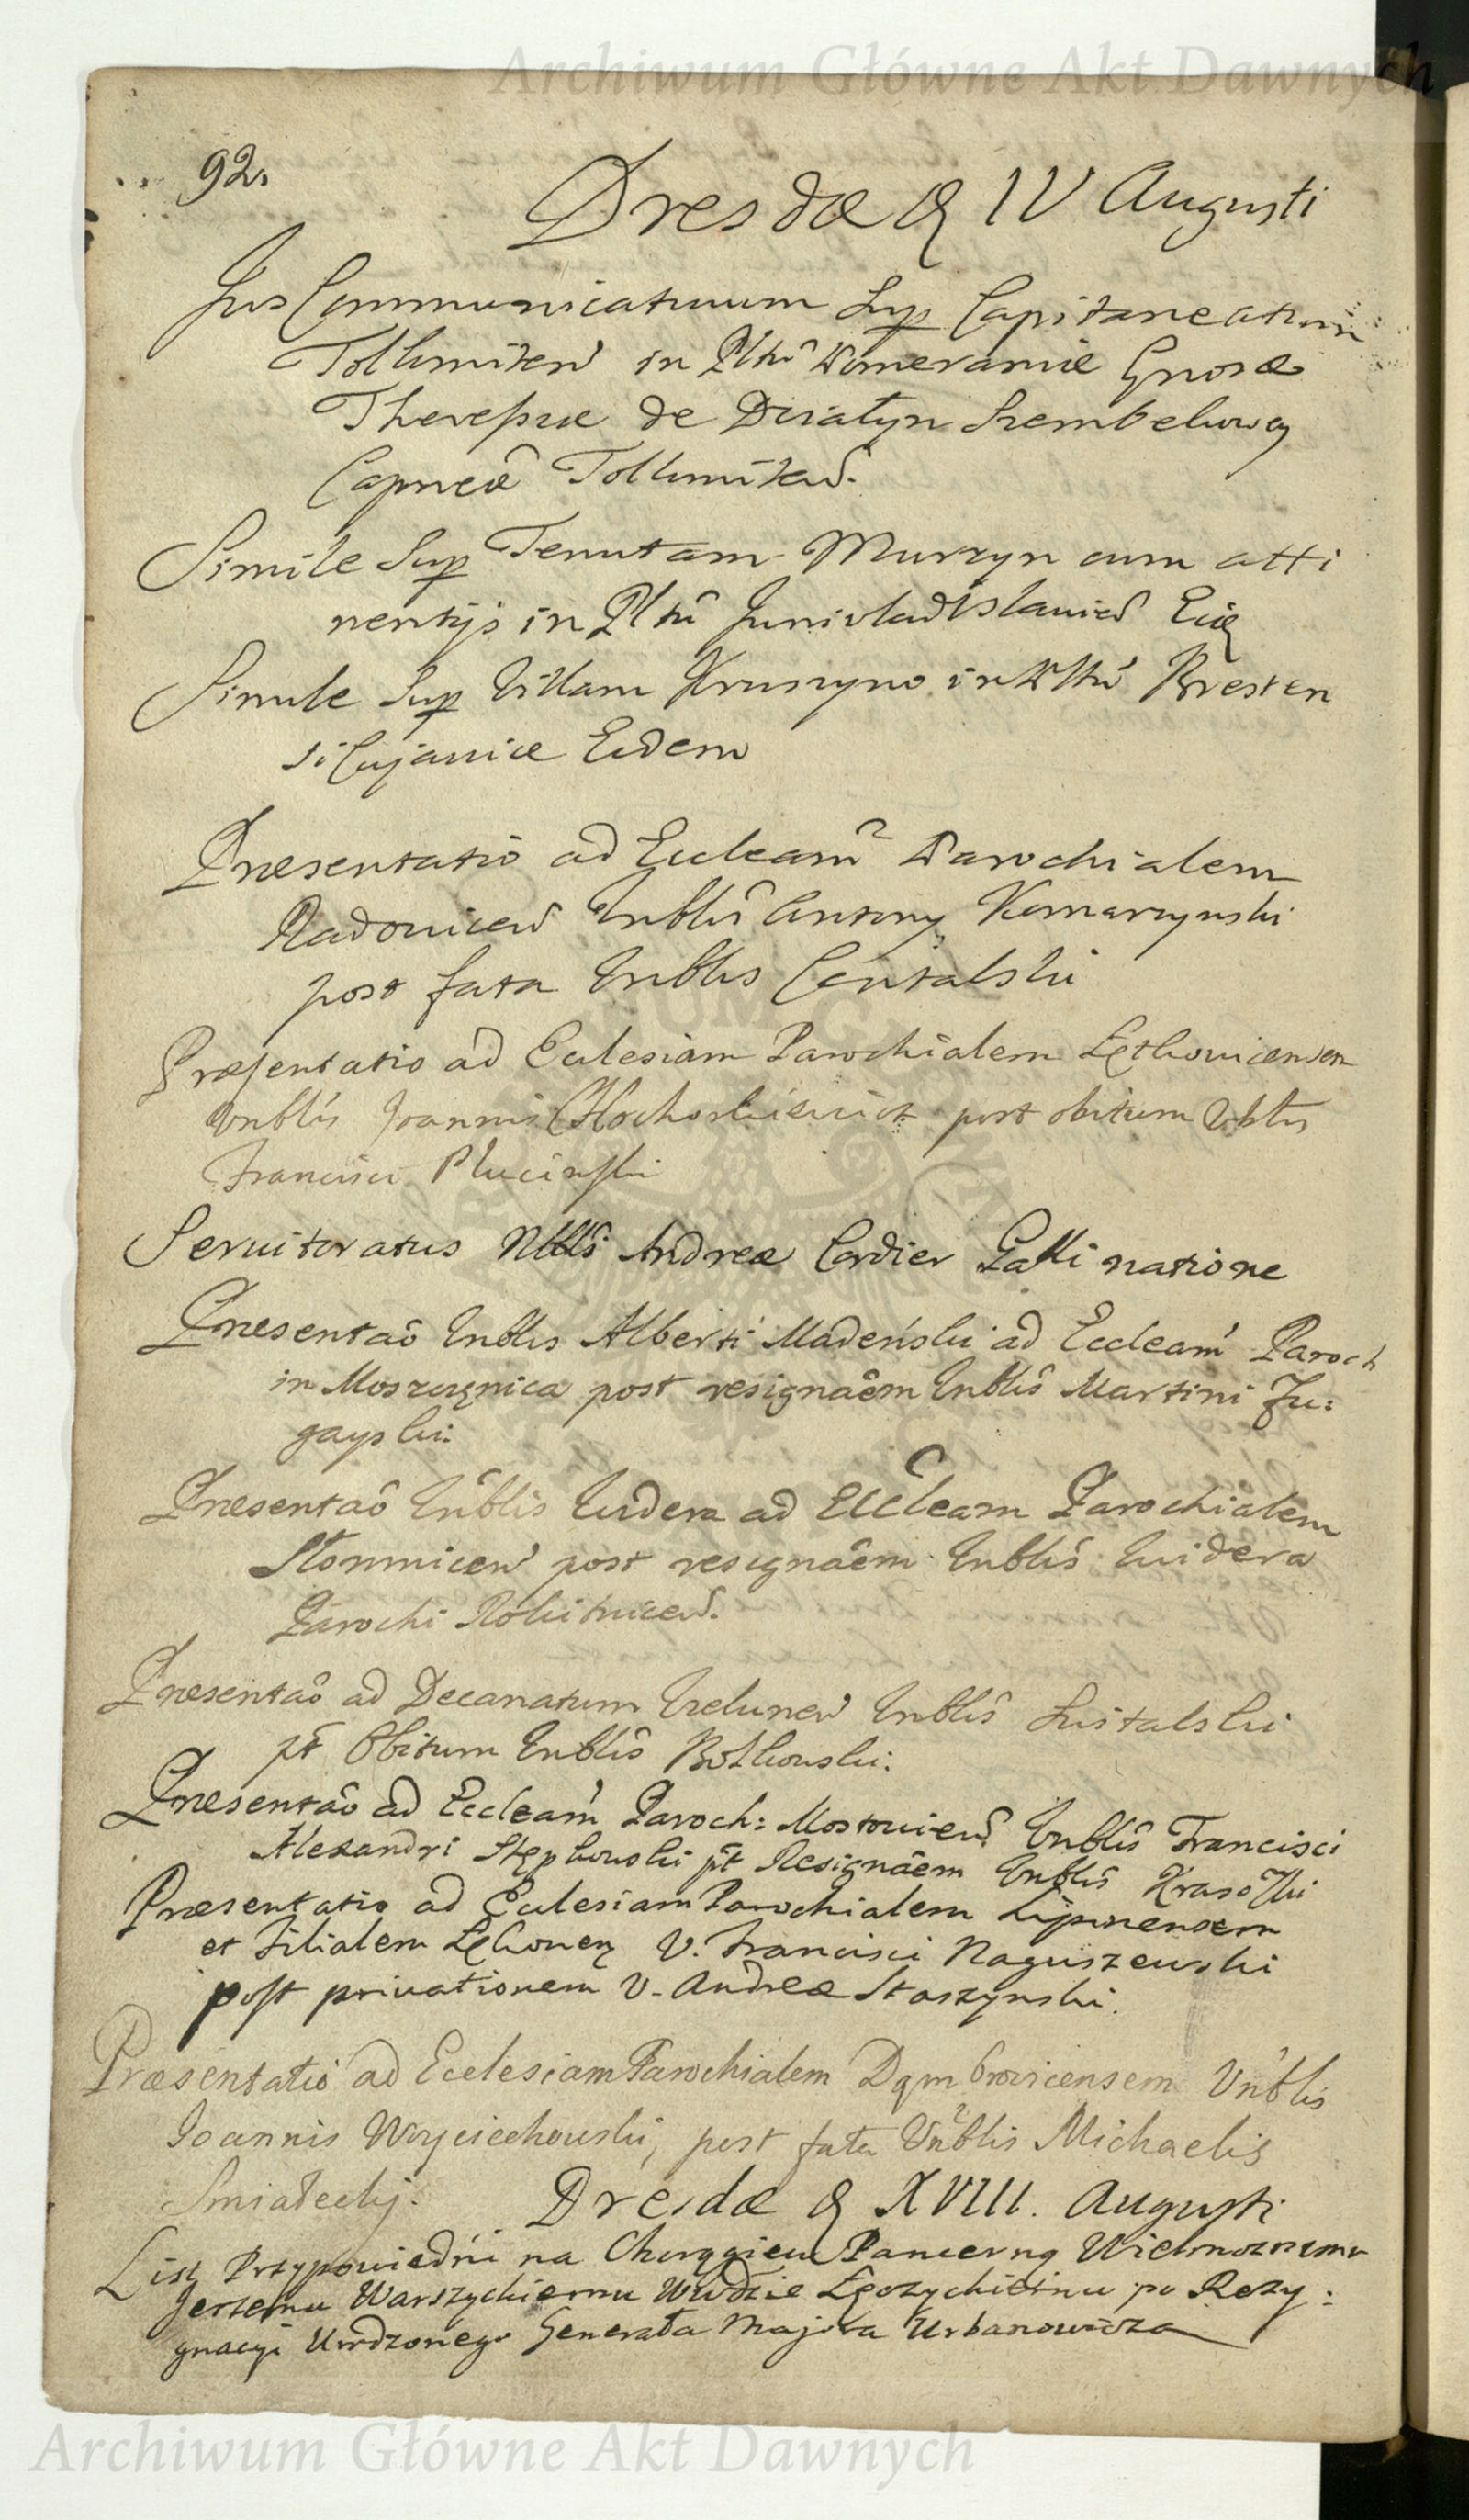 Archiwum Główne Akt Dawnych
92.
Dresdæ d IV Augusti
Jus Communicativum Sup Capitaneatum
Tolkmiten in Pltu Pomeraniæ Gnosæ
Theresiæ de Działyn Szembekowey
Capneæ Tolkmiten.
Simile Sup Tenutam Murzyn cum atti
nentijs in Pltu Junivladislavien Eid
Simile Sup Villam Kruszyno in Pltu Bresten
si Cujaviæ Eidem
Præsentatio ad Eccleam Parochialem
Radovicen Vnblis Antony Komarzynski
post fata Vnblis
Præsentatio ad Ecclesiam Parochialem Łętkovicensem
Vnblis Joannis post obitum Vblis
Francisci Plucinski
Servitoratus Nblis Andreæ Cordier Galli natione
Præsentao Vnblis Alberti Madeński ad Eccleam Paroch
in Moszczęnica post resignaem Vnblis Martini Fu:
gayski:
Præsentao Vnblis Ludera ad Eccleam Parochialem
Słomnicen post resignaem Vnblis Luidera
Parochi Rokitnicen.
Præsentao ad Decanatum Velunen Vnblis
pt Obitum Vnblis Bolkowski:
Præsentao ad Eccleam Paroch: Mostovien Vnblis Francisci
Alexandri Stępkowski pt Resignaem Vnblis
Præsentatio ad Ecclesiam Parochialem Lipnensem
et Filialem V. Francisci Naguszewski
post privationem V. Andreæ Staszynski.
Præsentatio ad Ecclesiam Parochialem Dąmbrovicensem Vnblis
Joannis Woyciechowski, post fata Vnblis Michaelis
Smiałecky.
Dresdæ d XVIII. Augusti
List Przypowiedni na Chorągiew Pancerną Wielmoznemu
Jerzemu Warszyckiemu Wwdzie Łęczyckiemu po Rezy:
gnacyi Urodzonego Generała Majora Urbanowicza
Archiwum Główne Akt Dawnych